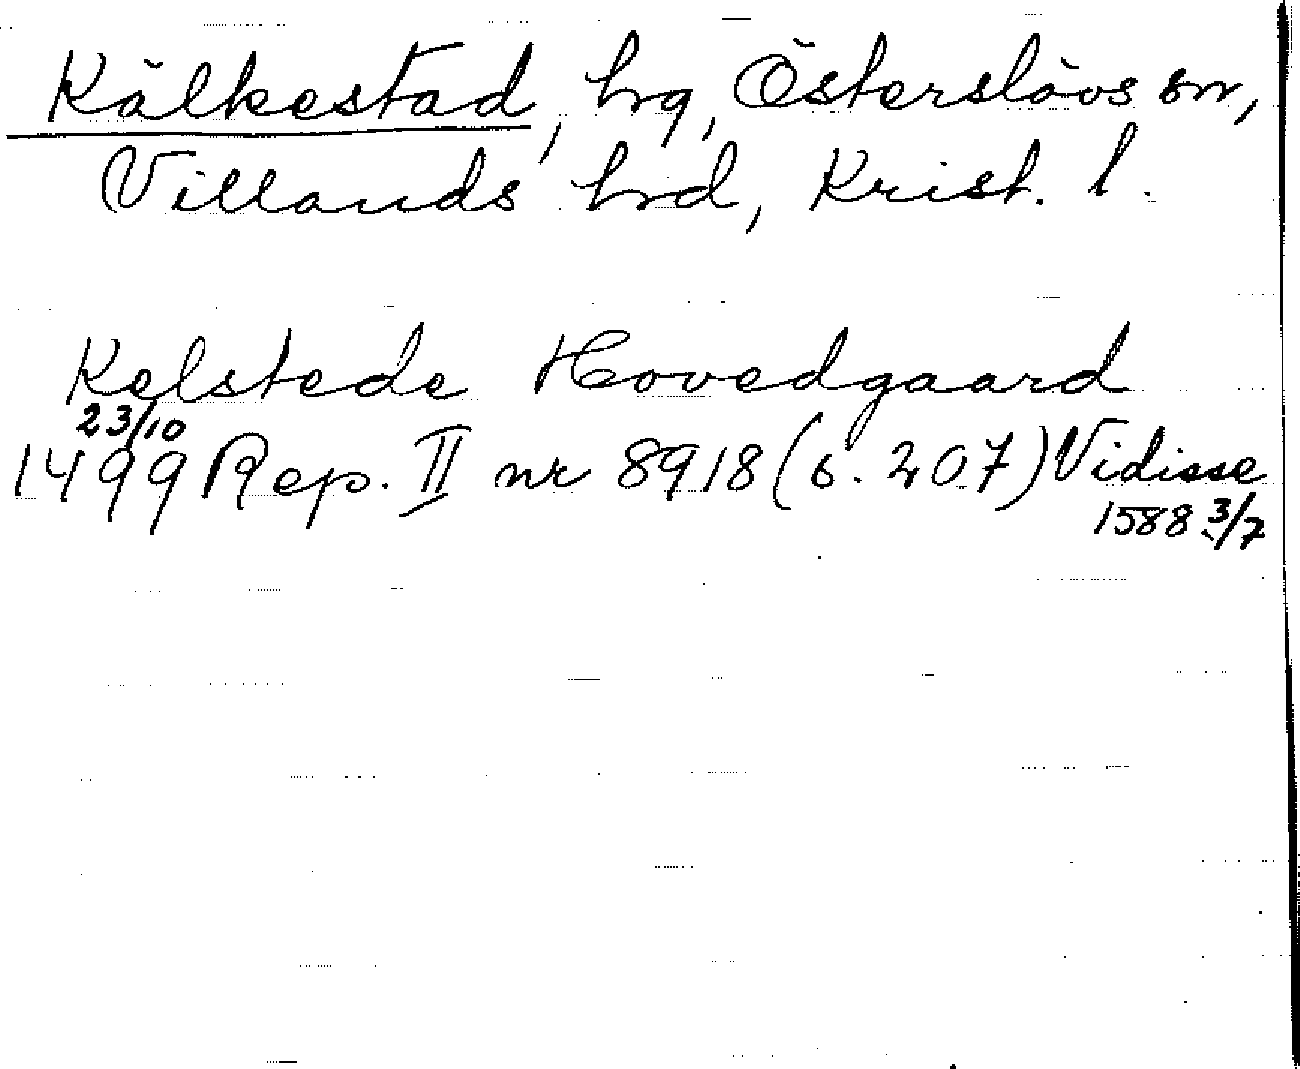 Kälkestad, hrg, Österslövs sn,
Villands hrd, Krist. l.
Kelstede Hovedgaard
23/10
1499 Rep. II nr 8918 (s. 207) Vidisse
1588 3/7